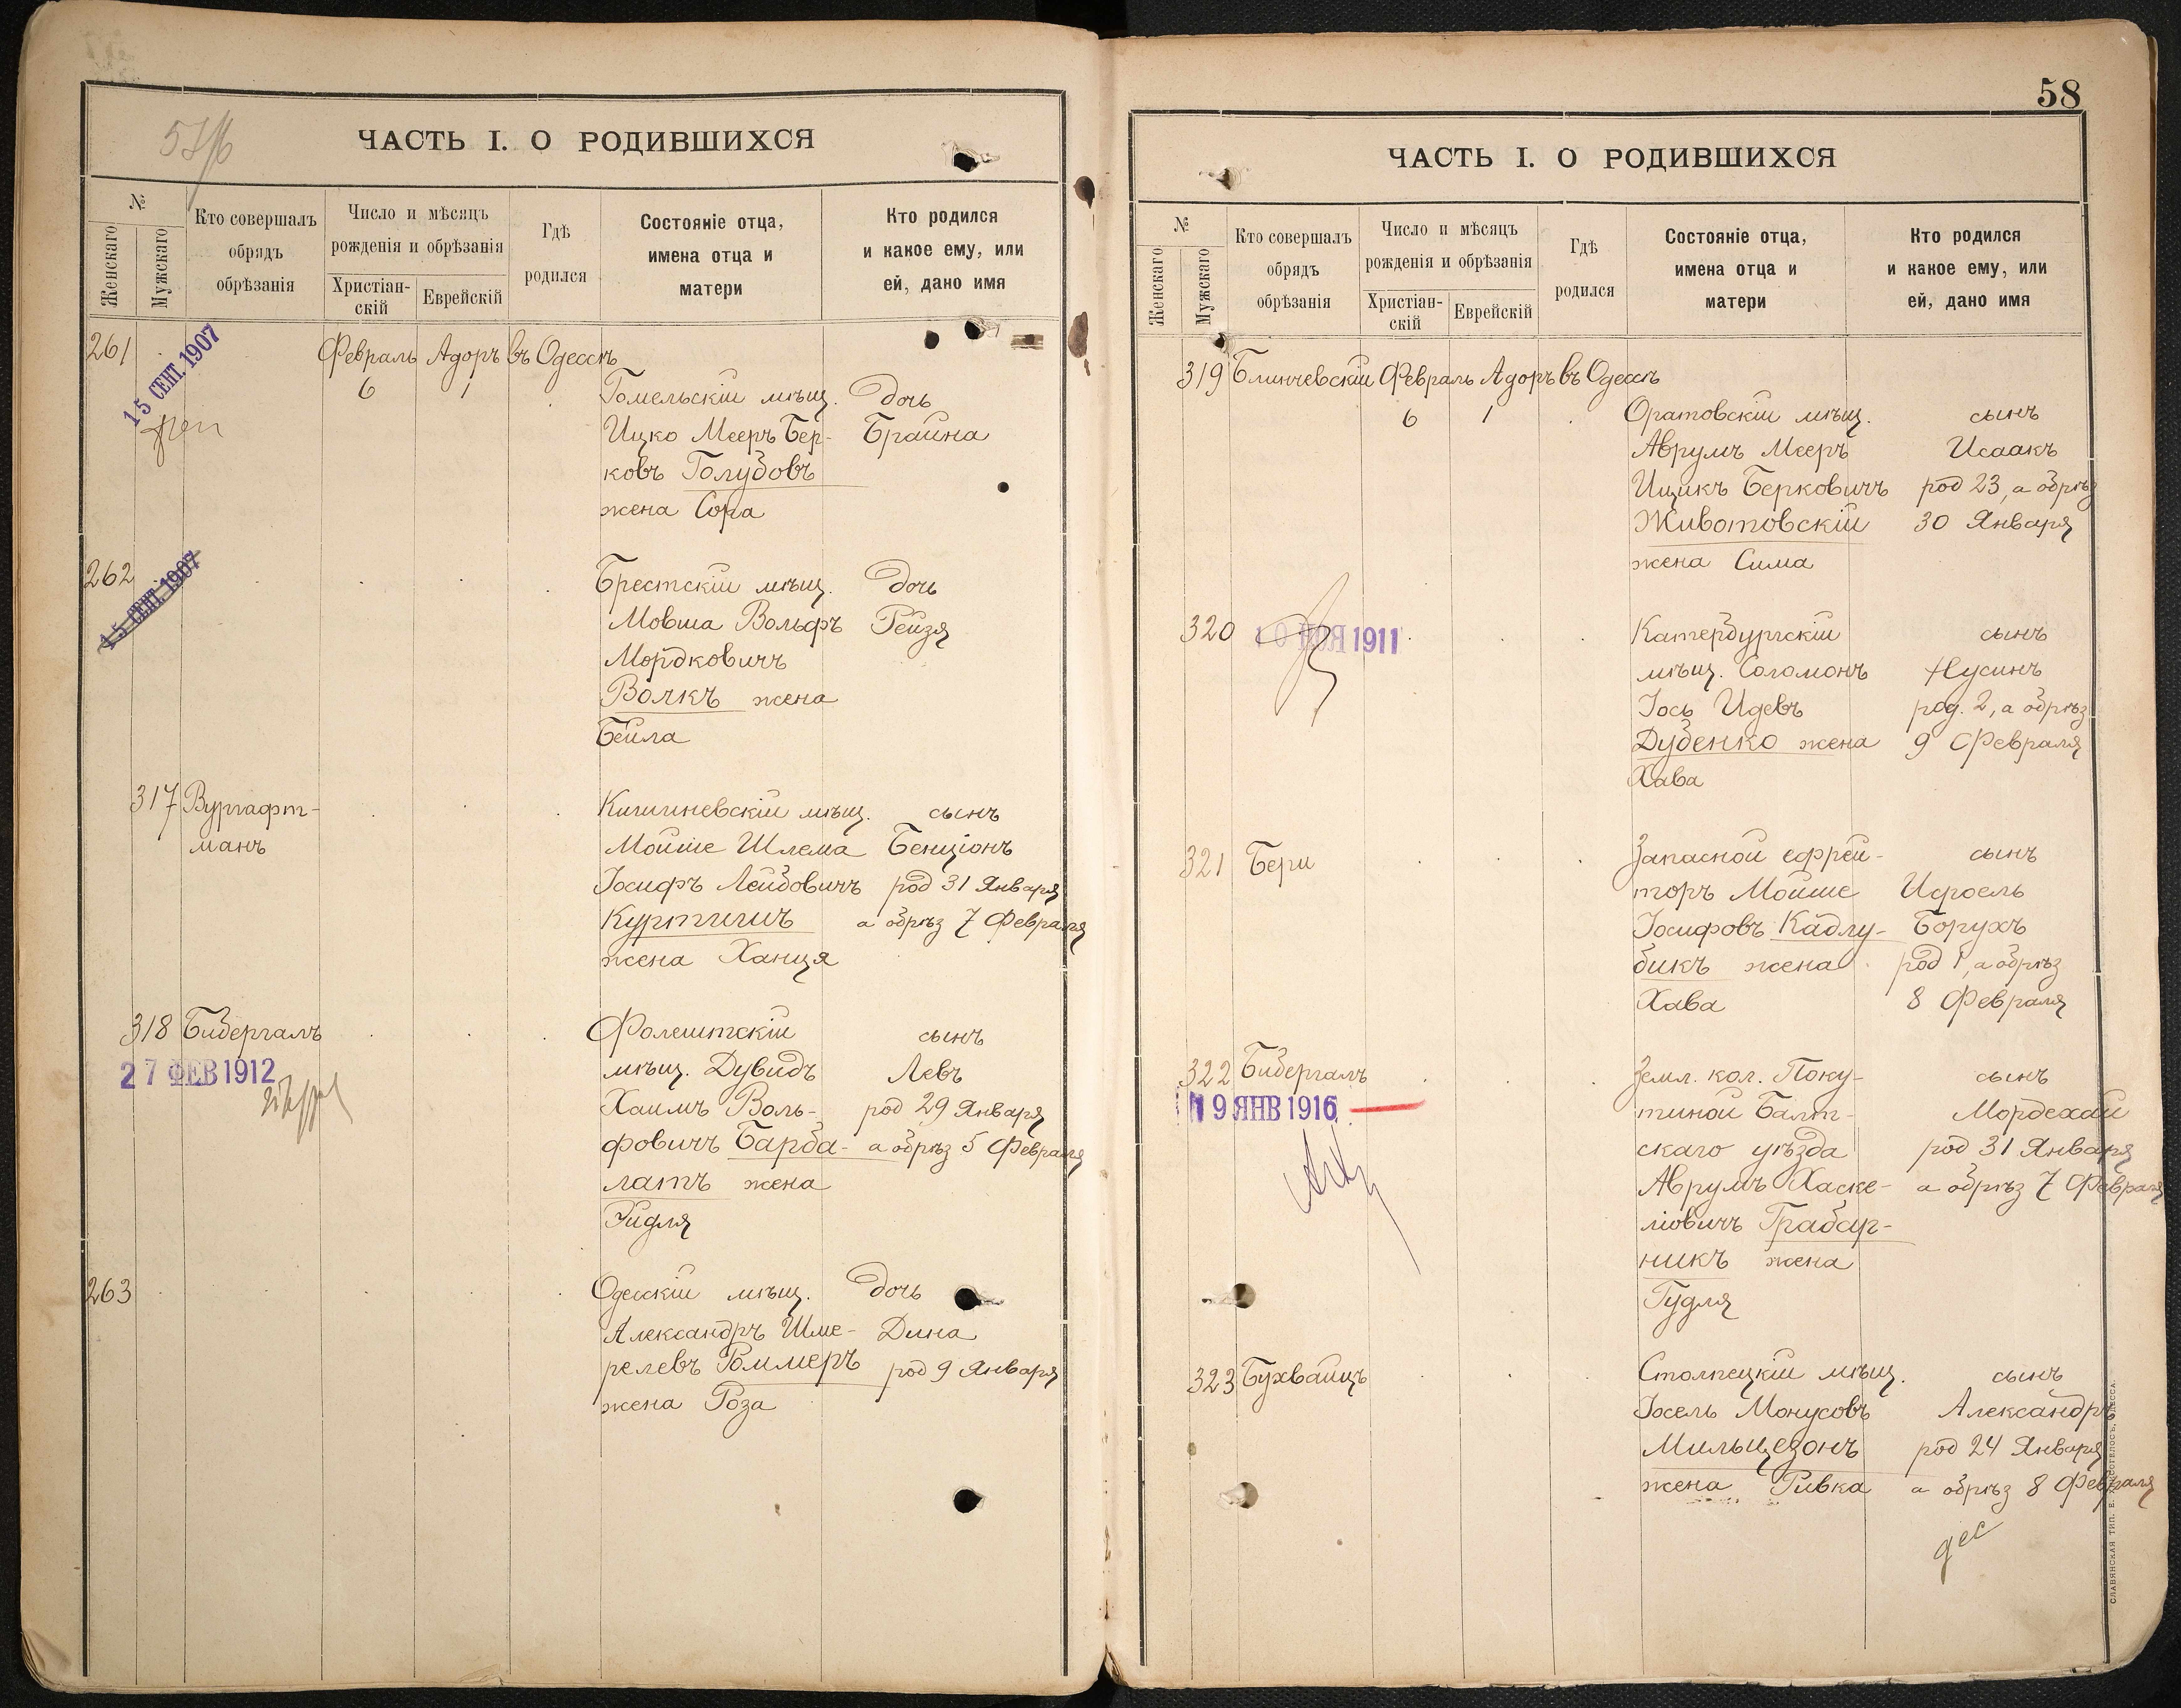 ЧАСТЬ I. О РОДИВШИХСЯ
№
Женскаго
Мужскаго
Кто совершалъ
обрядъ
обрѣзанія
Число и мѣсяцъ
рожденія и обрѣзанія
Христіан-
скій
Еврейскій
Гдѣ
родился
Состояніе отца,
имена отца и
матери
Кто родился
и какое ему, или
ей, дано имя
261
15 СЕНТ. 1907
Февраль Адоръ въ Одессѣ
6 1
Гомельскій мѣщ. дочь
Ицко Мееръ Бер- Брайна
ковъ Голубовъ
жена Сора
262
15 СЕНТ. 1907
Брестскій мѣщ. дочь
Мовша Вольфъ Рейзя
Мордковичъ
Волкъ жена
Бейла
317 Вургафт-
манъ
Кишиневскій мѣщ. сынъ
Мойше Шлема Бенціонъ
Іосифъ Лейбовичъ род 31 Января
Куртичъ а обрѣз 7 Февраля
жена Ханця
318 Бибергалъ
27 ФЕВ 1912
Фолештскій сынъ
мѣщ. Дувидъ Левъ
Хаимъ Воль- род 29 Января
фовичъ Барба- а обрѣз 5 Февраля
латъ жена
Гидля
263
Одесскій мѣщ. дочь
Александръ Шме- Дина
релевъ Роммеръ род 9 Января
жена Роза
58
ЧАСТЬ I. О РОДИВШИХСЯ
№
Женскаго
Мужскаго
Кто совершалъ
обрядъ
обрѣзанія
Число и мѣсяцъ
рожденія и обрѣзанія
Христіан-
скій
Еврейскій
Гдѣ
родился
Состояніе отца,
имена отца и
матери
Кто родился
и какое ему, или
ей, дано имя
319 Блинчевскій Февраль Адоръ въ Одессѣ
6 1
Оратовскій мѣщ. сынъ
Аврумъ Мееръ Исаакъ
Ицикъ Берковичъ род 23, а обрѣз
Животовскій 30 Января
жена Сима
320
10 НОЯ 1911
Катербургскій сынъ
мѣщ. Соломонъ Нусинъ
Іось Идевъ род. 2, а обрѣз
Дубенко жена 9 Февраля
Хава
321 Бери
Запасной ефрей- сынъ
торъ Мойше Исроель
Іосифовъ Кадлу- Борухъ
бикъ жена род 1, а обрѣз
Хава 8 Февраля
322 Бибергалъ
19 ЯНВ 1916
Земл. кол. Поку- сынъ
тиной Балт- Мордехай
скаго уѣзда род 31 Января
Аврумъ Хаске- а обрѣз 7 Февраля
ліовичъ Грабар-
никъ жена
Гудля
323 Бухвайцъ
Столпецкій мѣщ. сынъ
Іосель Монусовъ Александръ
Мильцезонъ род 24 Января
жена Ривка а обрѣз 8 Февраля